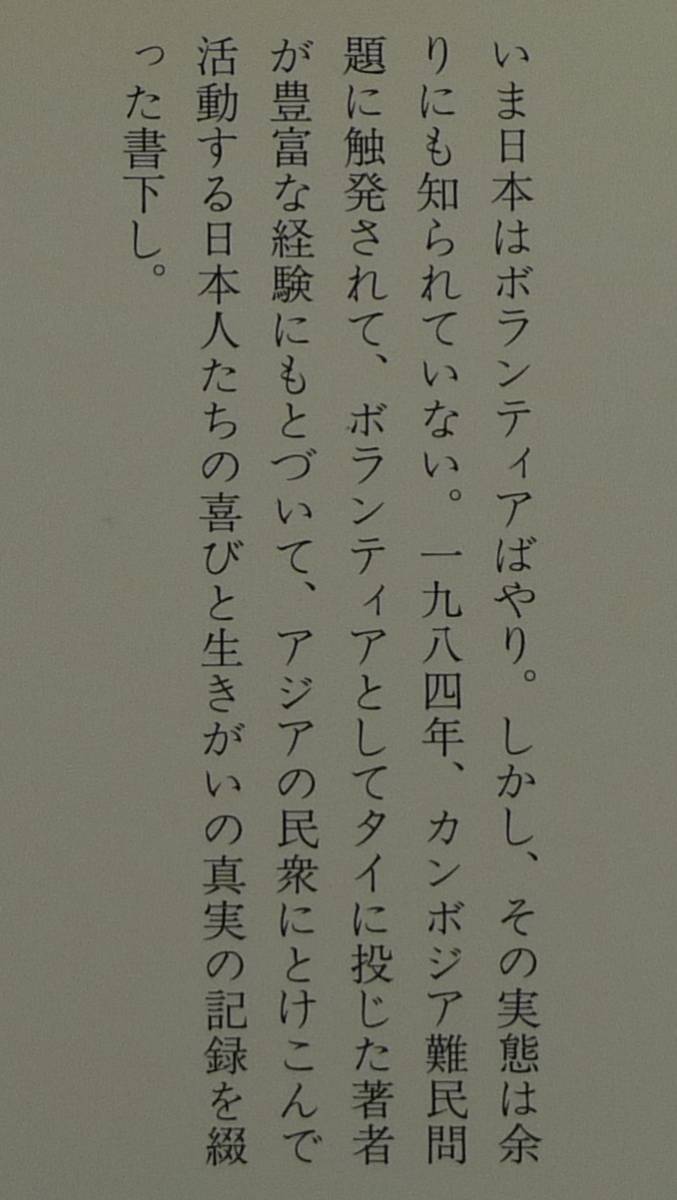 いま日本はボランティアばやり。しかし、その実態は余
りにも知られていない。一九八四年、カンボジア難民問
題に触発されて、ボランティアとしてタイに投じた著者
が豊富な経験にもとづいて、アジアの民衆にとけこんで
活動する日本人たちの喜びと生きがいの真実の記録を綴
った書下し。